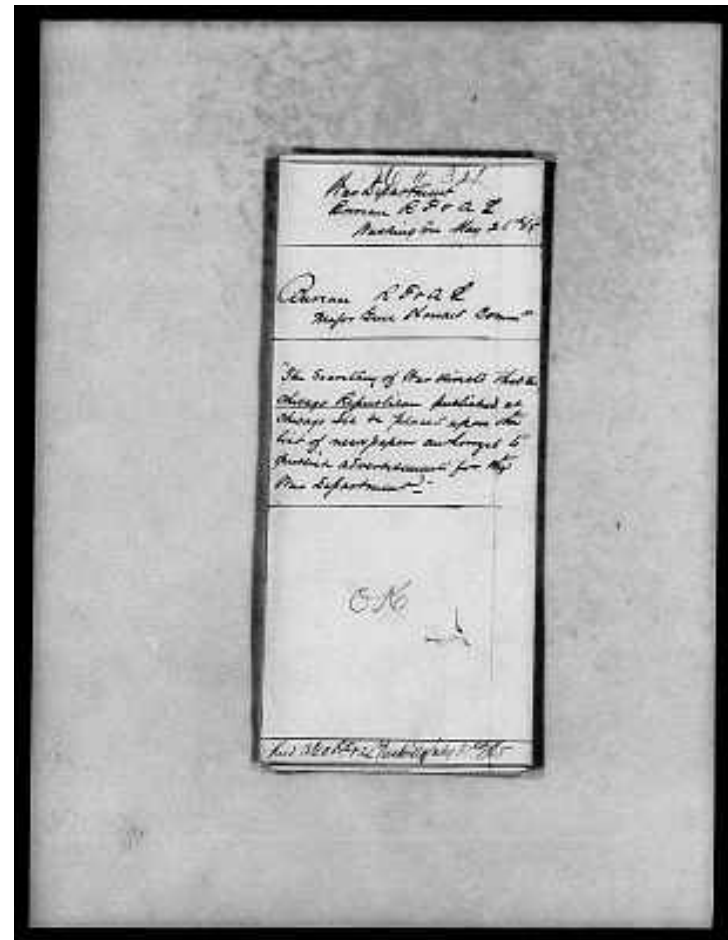 War Department
Bureau R F & A L
Washington May 2 65
Bureau R F & A L
Major Genl Howard Commr
The Secretary of War directs that the
Chicago Republican published at
Chicago Ill be placed upon the
list of newspapers authorized to
publish advertisements for the
War Department.
OK